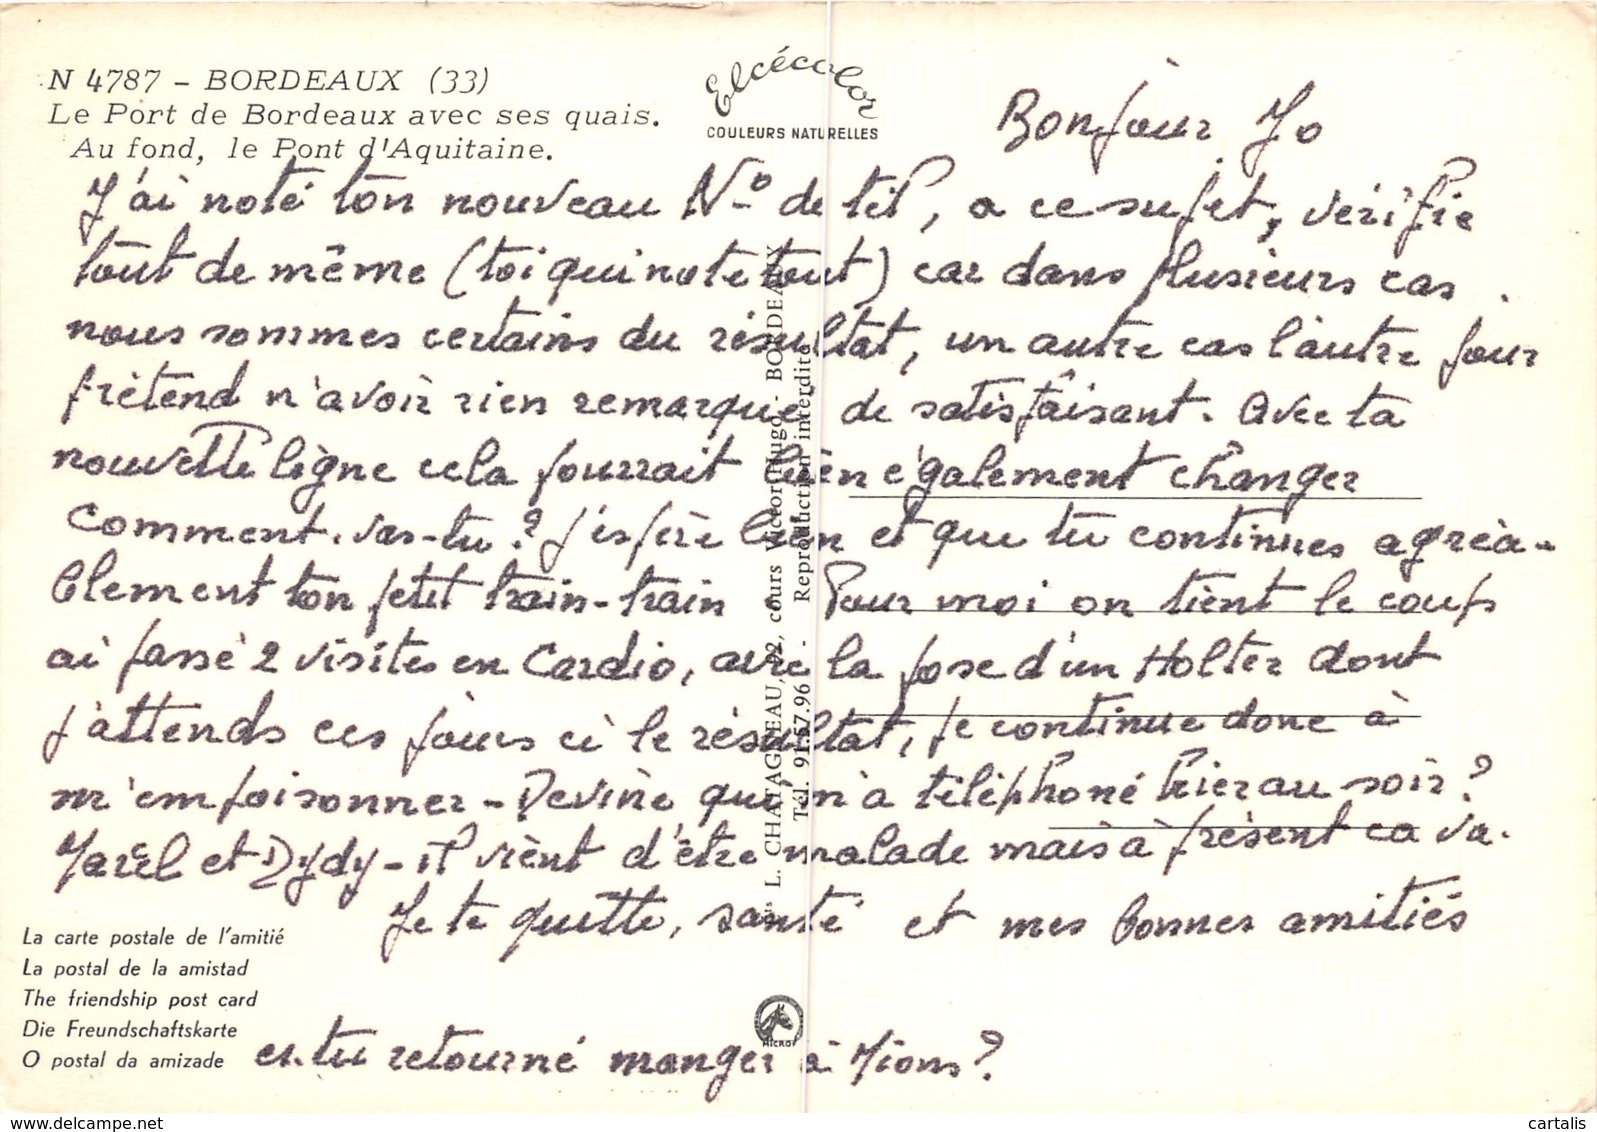 N 4787 - BORDEAUX (33)
Le Port de Bordeaux avec ses quais.
Au fond, le Pont d'Aquitaine.
Elcécolor
COULEURS NATURELLES
Bonjour Jo
J'ai noté ton nouveau N° de tél, a ce sujet, vérifie
tout de même (toi qui note tout) car dans plusieurs cas
nous sommes certains du résultat, un autre cas l'autre jour
prétend n'avoir rien remarqué de satisfaisant. Avec ta
nouvelle ligne cela pourrait bien également changer
Comment. vas-tu ? j'espère bien et que tu continues agréa-
blement ton petit train-train Pour moi on tient le coup
ai passé 2 visites en Cardio, avec la pose d'un Holter dont
j'attends ces jours ci le résultat, je continue donc à
m'empoisonner - Devine qui m'a téléphoné hier au soir ?
et Dydy - il vient d'être malade mais à présent ca va.
Je te quitte, santé et mes bonnes amitiés
es.tu retourné manger à Mions ?
L. CHATAGNEAU, 92, cours Victor Hugo - BORDEAUX
Tél. 91.57.96 - Reproduction interdite
La carte postale de l'amitié
La postal de la amistad
The friendship post card
Die Freundschaftskarte
O postal da amizade
www.delcampe.net
cartalis